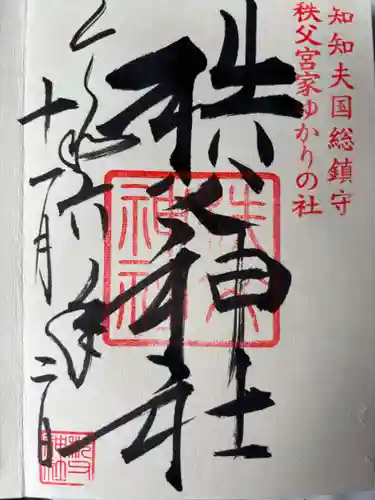 知知夫国総鎮守
秩父宮家ゆかりの社
秩父神社
令和六年
十一月二日
秩父神社